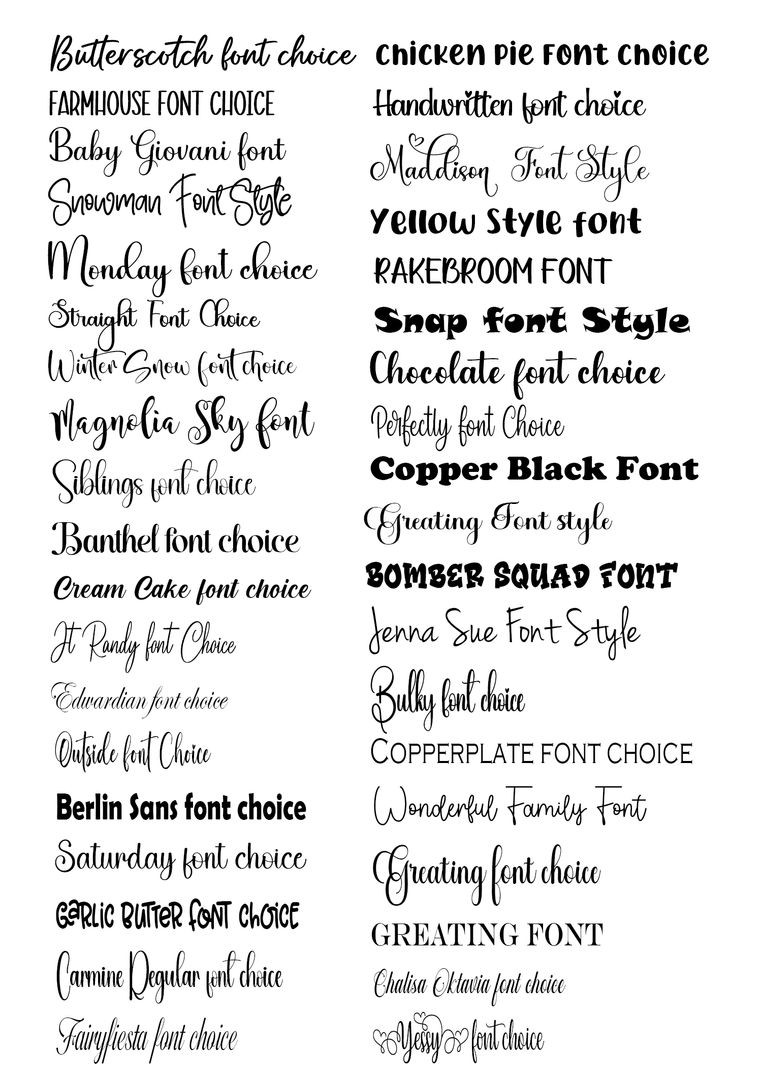 Butterscotch font choice
FARMHOUSE FONT CHOICE
Baby Giovani font
Snowman Font Style
Monday font choice
Straight Font Choice
Winter Snow font choice
Magnolia Sky font
Siblings font choice
Banthel font choice
Cream Cake font choice
Jt Randy font Choice
Edwardian font choice
Outside font Choice
Berlin Sans font choice
Saturday font choice
GaRLic BUTTeR foNT cHOICE
Carmine Regular font choice
Fairyfiesta font choice
Chicken Pie Font Choice
Handwritten font choice
Maddison Font Style
Yellow Style font
RAKEBROOM FONT
Snap font Style
Chocolate font choice
Perfectly font Choice
Copper Black Font
Greating Font style
BOMBER SQUAD FONT
Jenna Sue Font Style
Bulky font choice
COPPERPLATE FONT CHOICE
Wonderful Family Font
Greating font choice
GREATING FONT
Chalisa Oktavia font choice
Yessy font choice